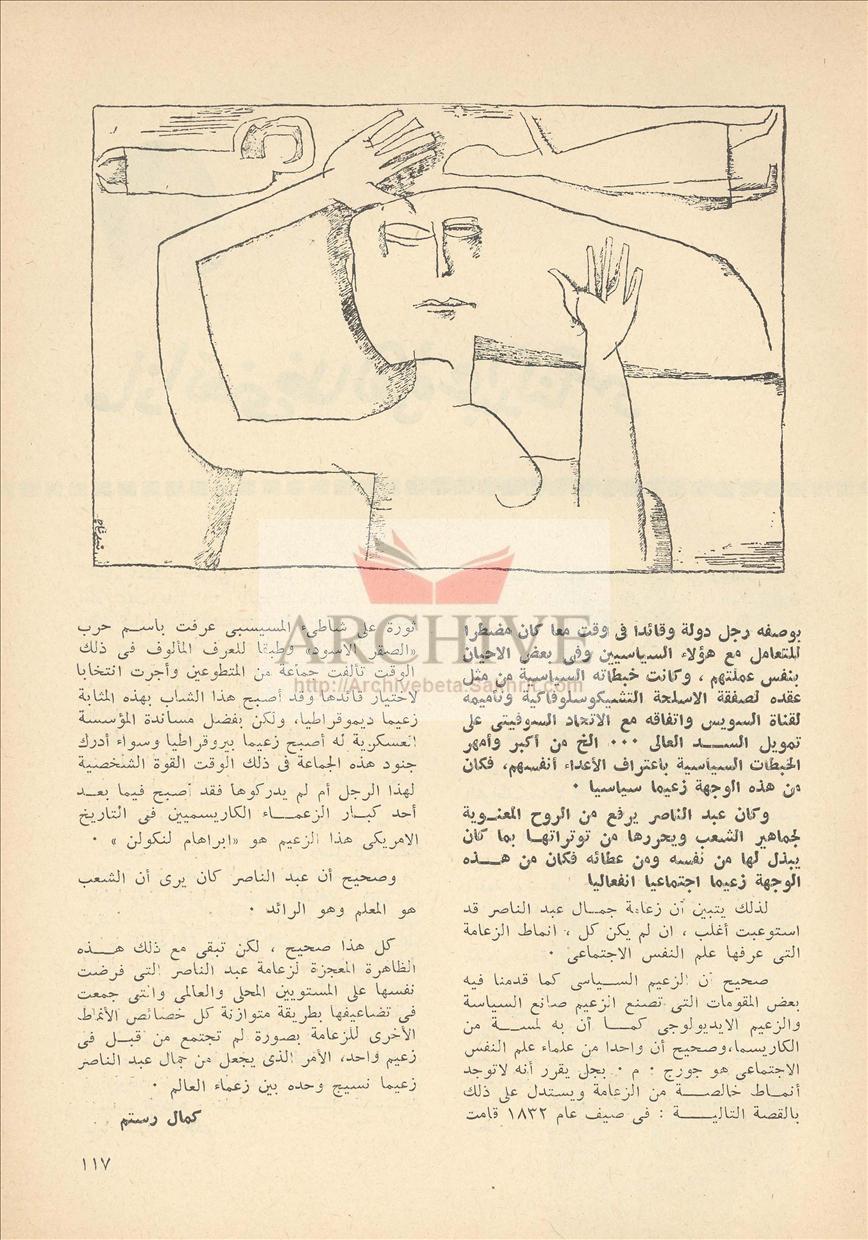 بوصفه رجل دولة وقائدا فى وقت معا كان مضطرا
للتعامل مع هؤلاء السياسيين وفى بعض الاحيان
بنفس عملتهم ، وكانت خبطاته السياسية من مثل
عقده لصفقة الاسلحة التشيكوسلوفاكية وتأميمه
لقناة السويس واتفاقه مع الاتحاد السوفيتى على
تمويل الســد العالى ٠٠٠ الخ من أكبر وأمهر
الخبطات السياسية باعتراف الأعداء أنفسهم، فكان
من هذه الوجهة زعيما سياسيا ٠
وكان عبد الناصر يرفع من الروح المعنوية
لجماهير الشعب ويحررها من توتراتها بما كان
يبذل لها من نفسه ومن عطائه فكان من هــذه
الوجهة زعيما اجتماعيا انفعاليا ٠
لذلك يتبين أن زعامة جمال عبد الناصر قد
استوعبت أغلب ، ان لم يكن كل ، انماط الزعامة
التى عرفها علم النفس الاجتماعى ٠
صحيح أن الزعيم السياسى كما قدمنا فيه
بعض المقومات التى تصنع الزعيم صانع السياسة
والزعيم الايديولوجى كمــا أن به لمســة من
الكاريسما،وصحيح أن واحدا من علماء علم النفس
الاجتماعى هو جورج ٠ م ٠ بجل يقرر أنه لاتوجد
أنماط خالصــة من الزعامة ويستدل على ذلك
بالقصة التاليــة : فى صيف عام ١٨٣٢ قامت
ثورة على شاطىء المسيسبى عرفت باسم حرب
«الصقر الاسود» وطبقا للعرف المألوف فى ذلك
الوقت تألفت جماعة من المتطوعين وأجرت انتخابا
لاختيار قائدها وقد أصبح هذا الشاب بهذه المثابة
زعيما ديموقراطيا، ولكن بفضل مساندة المؤسسة
العسكرية له أصبح زعيما بيروقراطيا وسواء أدرك
جنود هذه الجماعة فى ذلك الوقت القوة الشخصية
لهذا الرجل أم لم يدركوها فقد أصبح فيما بعــد
أحد كبــار الزعمــاء الكاريسميين فى التاريخ
الامريكى هذا الزعيم هو «ابراهام لنكولن » ٠
وصحيح أن عبد الناصر كان يرى أن الشعب
هو المعلم وهو الرائد ٠
كل هذا صحيح ، لكن تبقى مع ذلك هــذه
الظاهرة المعجزة لزعامة عبد الناصر التى فرضت
نفسها على المستويين المحلى والعالمى والتى جمعت
فى تضاعيفها بطريقة متوازنة كل خصائص الأنماط
الأخرى للزعامة بصورة لم تجتمع من قبــل فى
زعيم واحد، الأمر الذى يجعل من جمال عبد الناصر
زعيما نسيج وحده بين زعماء العالم ٠
كمال رستم
١١٧
ARCHIVE
http://Archivebeta.Sakhrit.com